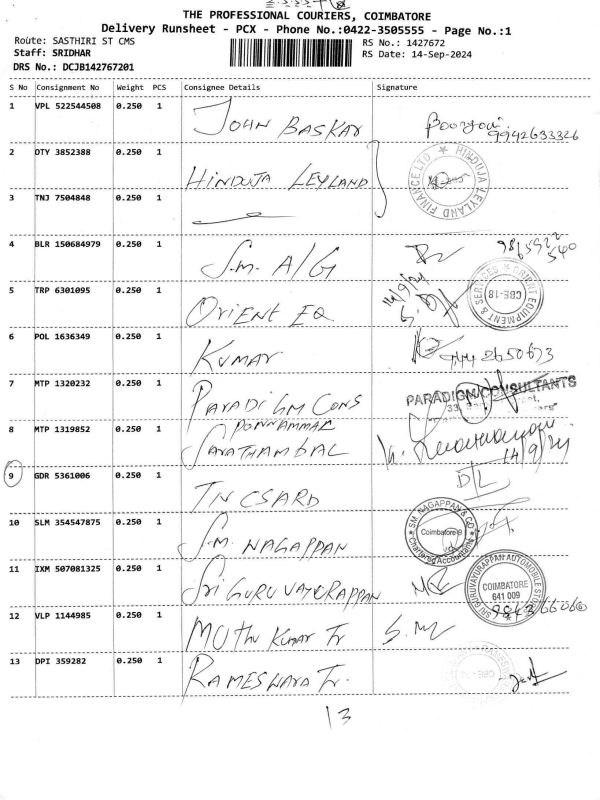 THE PROFESSIONAL COURIERS, COIMBATORE
Delivery Runsheet - PCX - Phone No.:0422-3505555 - Page No.:1
Route: SASTHIRI ST CMS
RS No.: 1427672
Staff: SRIDHAR
RS Date: 14-Sep-2024
DRS No.: DCJB142767201
S No Consignment No Weight PCS Consignee Details Signature
1 VPL 522544508 0.250 1 JOHN BASKAR
9942633326
2 OTY 3852388 0.250 1 HINDUJA LEYLAND
HINDUJA LEYLAND FINANCE LTD
3 TNJ 7504848 0.250 1
4 BLR 150684979 0.250 1 S.M. A/G
14/9/24
5 TRP 6301095 0.250 1 ORIENT EQ
ORIENT EQUIPMENT & SERVICES
CBE-18
6 POL 1636349 0.250 1 KUMAR
7 MTP 1320232 0.250 1 PARADIGM CONS
PARADIGM CONSULTANTS
8 MTP 1319852 0.250 1 PONNAMMAL
SARATHAMBAL
14/9/24
9 GDR 5361006 0.250 1 TNCSARD
D/L
10 SLM 354547875 0.250 1 S.M. NAGAPPAN
S.M. NAGAPPAN & CO
Coimbatore-9
Chartered Accountants
11 IXM 507081325 0.250 1 SRI GURUVAYURAPPAN
SRI GURUVAYURAPPAN AUTOMOBILE STORES
COIMBATORE
641 009
12 VLP 1144985 0.250 1 MUTHU KUMAR Tr
13 DPI 359282 0.250 1 RAMESWARA Tr.
13